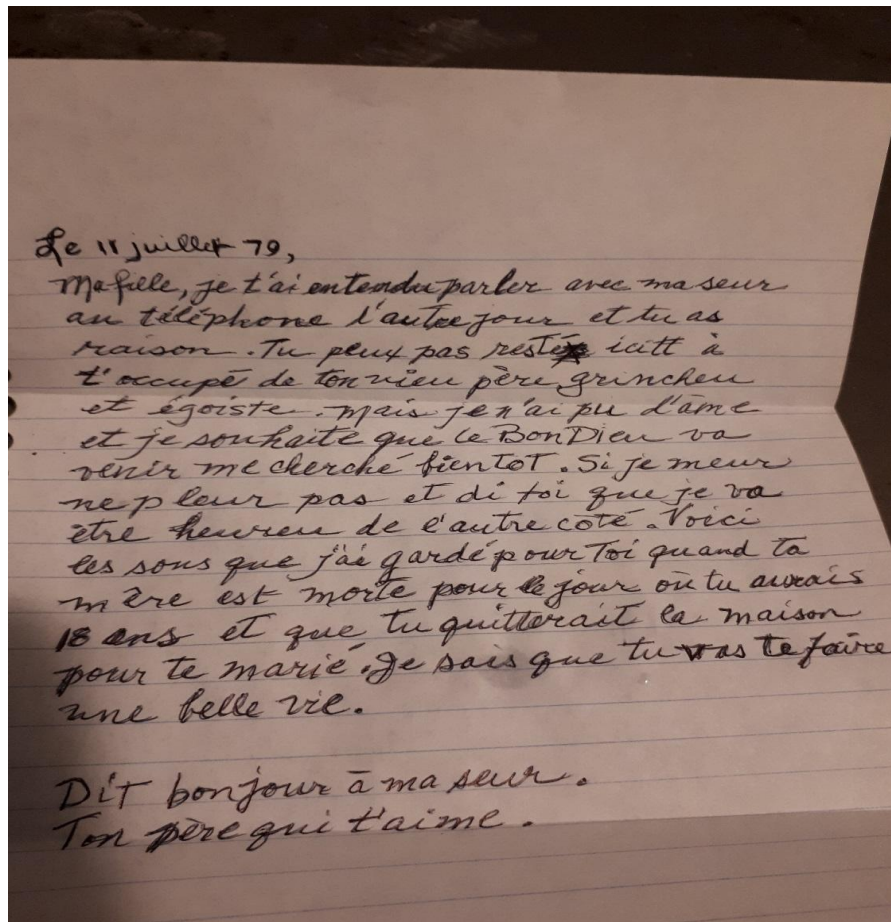 Le 11 juillet 79,
Ma fille, je t'ai entendu parler avec ma seur
au téléphone l'autre jour et tu as
raison. Tu peux pas resté icitt à
t'occupé de ton vieu père grincheu
et égoiste. Mais je n'ai pu d'âme
et je souhaite que le Bon Dieu va
venir me cherché bientot. Si je meur
ne pleur pas et di toi que je va
être heureu de l'autre côté. Voici
les sous que j'ai gardé pour Toi quand ta
mère est morte pour le jour où tu aurais
18 ans et que tu quitterait la maison
pour te marié. Je sais que tu vas te faire
une belle vie.
Dit bonjour à ma seur.
Ton père qui t'aime.